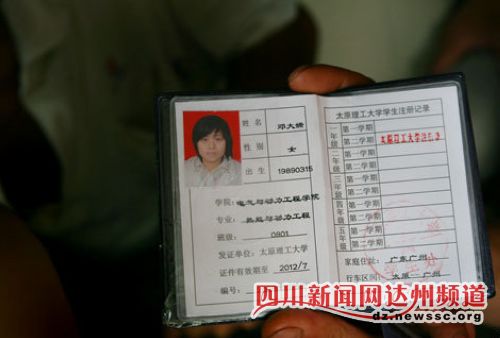 姓名 邓大娇
性别 女
出生 19890315
学院:电气与动力工程学院
专业:热能与动力工程
班级: 0801
发证单位:太原理工大学
证件有效期至 2012/7
编号:
太原理工大学学生注册记录
一年级 第一学期
第二学期 太原理工大学
二年级 第一学期
第二学期
三年级 第一学期
第二学期
四年级 第一学期
第二学期
五年级 第一学期
第二学期
家庭住址: 广东广州
行车区间: 太原—广州
四川新闻网达州频道
dz.newssc.org